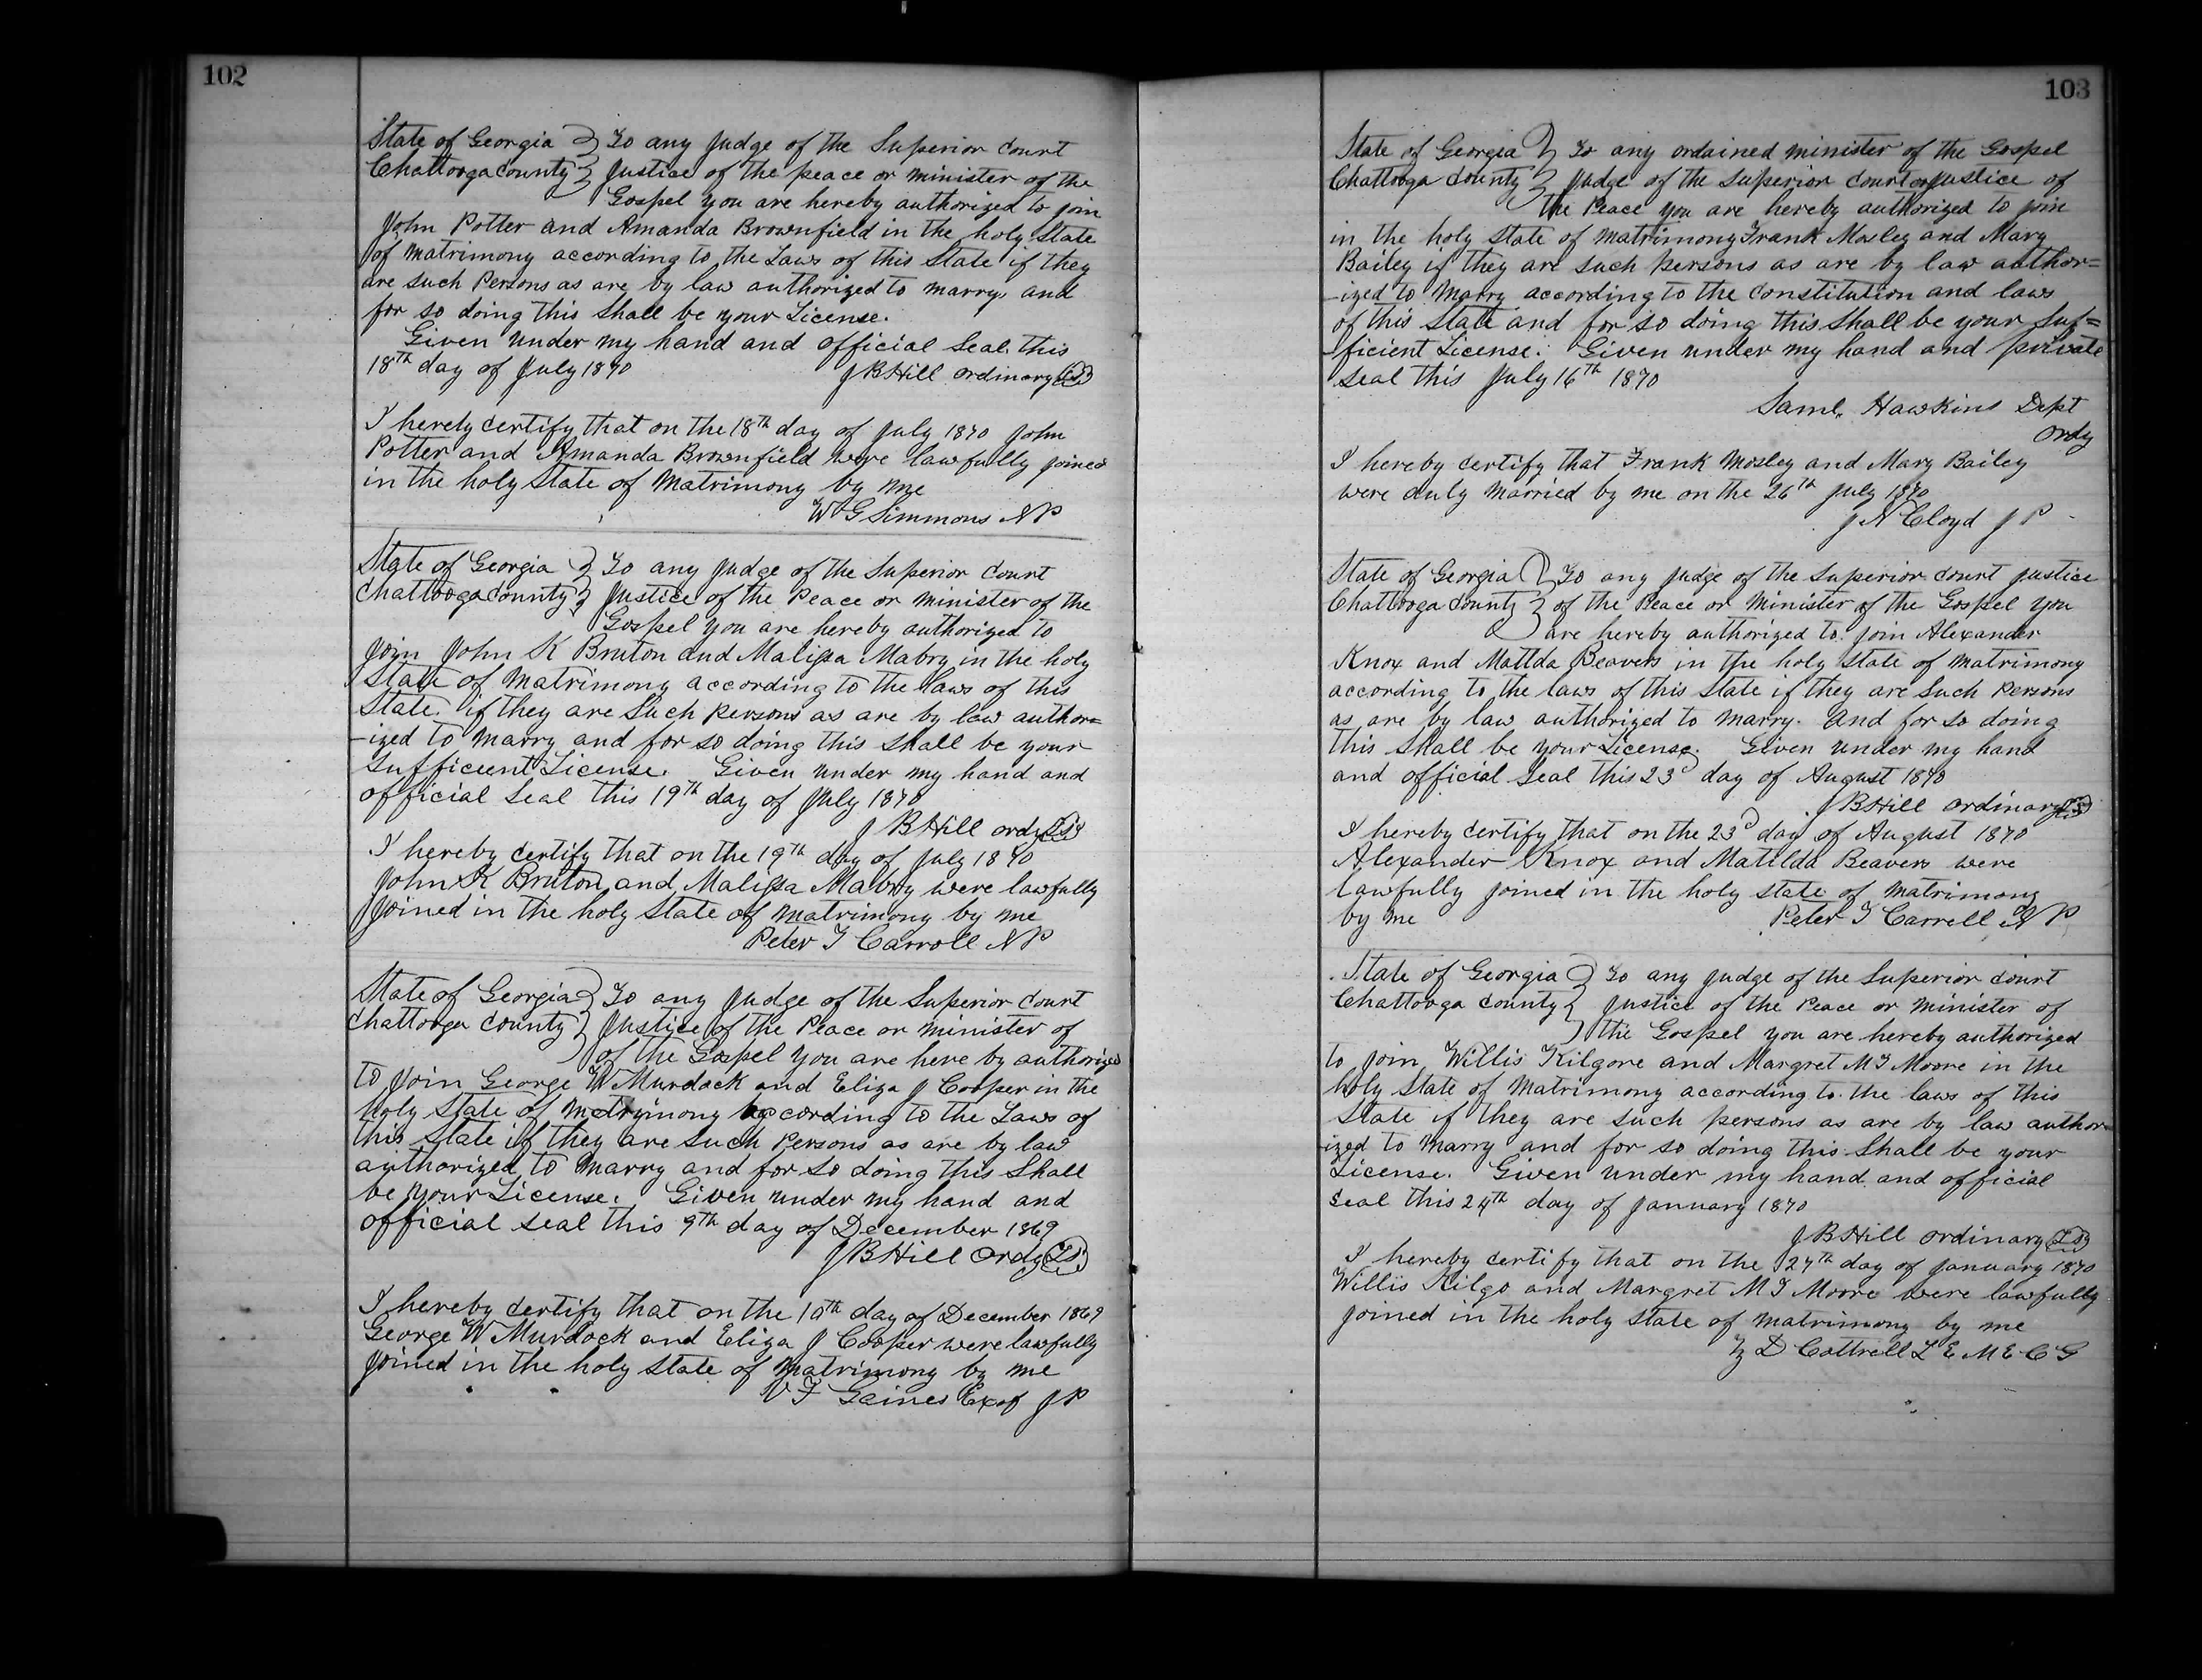 102
State of Georgia } To any Judge of the Superior Court
Chattooga County } Justice of the peace or minister of the
Gospel you are hereby authorized to join
John Potter and Amanda Brownfield in the holy State
of matrimony according to the Laws of this State if they
are such Persons as are by law authorized to marry, and
for so doing this shall be your License.
Given under my hand and official Seal this
18th day of July 1870 J B Hill ordinary LS
I hereby certify that on the 18th day of July 1870 John
Potter and Amanda Brownfield were lawfully joined
in the holy State of Matrimony by me
W G Simmons N P
State of Georgia } To any Judge of the Superior Court
Chattooga County } Justice of the Peace or minister of the
Gospel you are hereby authorized to
join John K Bruton and Malissa Mabry in the holy
State of Matrimony according to the laws of this
State. if they are Such persons as are by law author=
-ized to marry and for so doing this shall be your
sufficient License. Given under my hand and
official Seal this 19th day of July 1870
J B Hill ordy LS
I hereby certify that on the 19th day of July 1870
John K Bruton and Malissa Mabry were lawfully
joined in the holy State of matrimony by me
Peter T Carroll N P
State of Georgia } To any Judge of the Superior Court
Chattooga County } Justice of the Peace or minister of
of the Gospel you are here by authorized
to join George W Murdock and Eliza J Cooper in the
holy State of matrimony according to the Laws of
this State if they are such Persons as are by law
authorized to marry and for so doing this Shall
be your License. Given under my hand and
official seal this 9th day of December 1869
J B Hill Ordy LS
I hereby certify that on the 10th day of December 1869
George W Murdock and Eliza J Cooper were lawfully
joined in the holy state of matrimony by me
V F Gaines Exof J P
103
State of Georgia } To any ordained minister of the Gospel
Chattooga County } Judge of the Superior Court or Justice of
the Peace you are hereby authorized to join
in the holy state of matrimony Frank Mosley and Mary
Bailey if they are such persons as are by law author=
-ized to Marry according to the Constitution and laws
of this State and for so doing this shall be your Suf=
-ficient License. Given under my hand and private
seal this July 16th 1870
Saml. Hawkins Dept
Ordy
I hereby certify that Frank Mosley and Mary Bailey
were duly married by me on the 26th July 1870
J N Cloyd J P
State of Georgia } To any Judge of the Superior Court Justice
Chattooga County } of the Peace or Minister of the Gospel you
are hereby authorized to join Alexander
Knox and Matlda Beavers in the holy state of matrimony
according to the laws of this State if they are such Persons
as are by law authorized to marry. And for so doing
this shall be your License. Given under my hand
and official Seal this 23d day of August 1870
J B Hill ordinary LS
I hereby certify that on the 23d day of August 1870
Alexander Knox and Matilda Beavers were
lawfully joined in the holy state of matrimony
by me Peter T Carrell N P
State of Georgia } To any Judge of the Superior Court
Chattooga County } Justice of the Peace or Minister of
the Gospel you are hereby authorized
to join Willis Kilgore and Margret M T Moore in the
holy State of Matrimony according to the laws of this
State if they are such persons as are by law author=
ized to Marry and for so doing this Shall be your
License. Given under my hand and official
seal this 24th day of January 1870
J B Hill ordinary LS
I hereby certify that on the 27th day of January 1870
Willis Kilgo and Margret M T Moore were lawfully
joined in the holy state of matrimony by me
D Cottrell L E M E C S